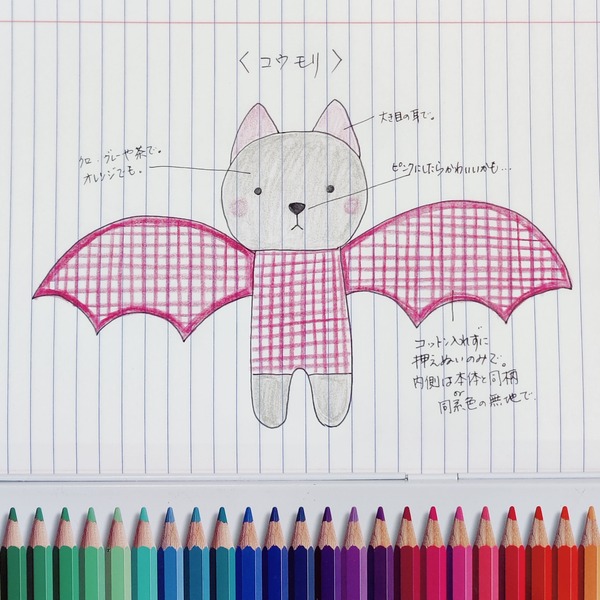 〈コウモリ〉
大き目の耳で。
クロ・グレーや茶で。
オレンジでも。
ピンクにしたらかわいいかも…
コットン入れずに
押えぬいのみで。
内側は本体と同柄
or
同系色の無地で。